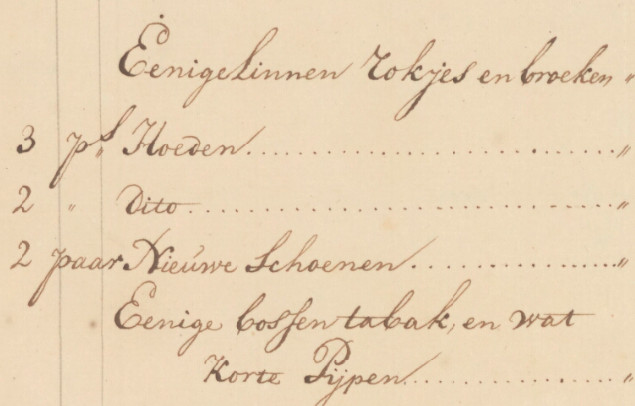 Eenige Linnen rokjes en broeken "
3 ps Hoeden.............................."
2 " Dito.............................."
2 paar Nieuwe Schoenen.............."
Eenige bossen tabak, en wat
Korte Pijpen.............."